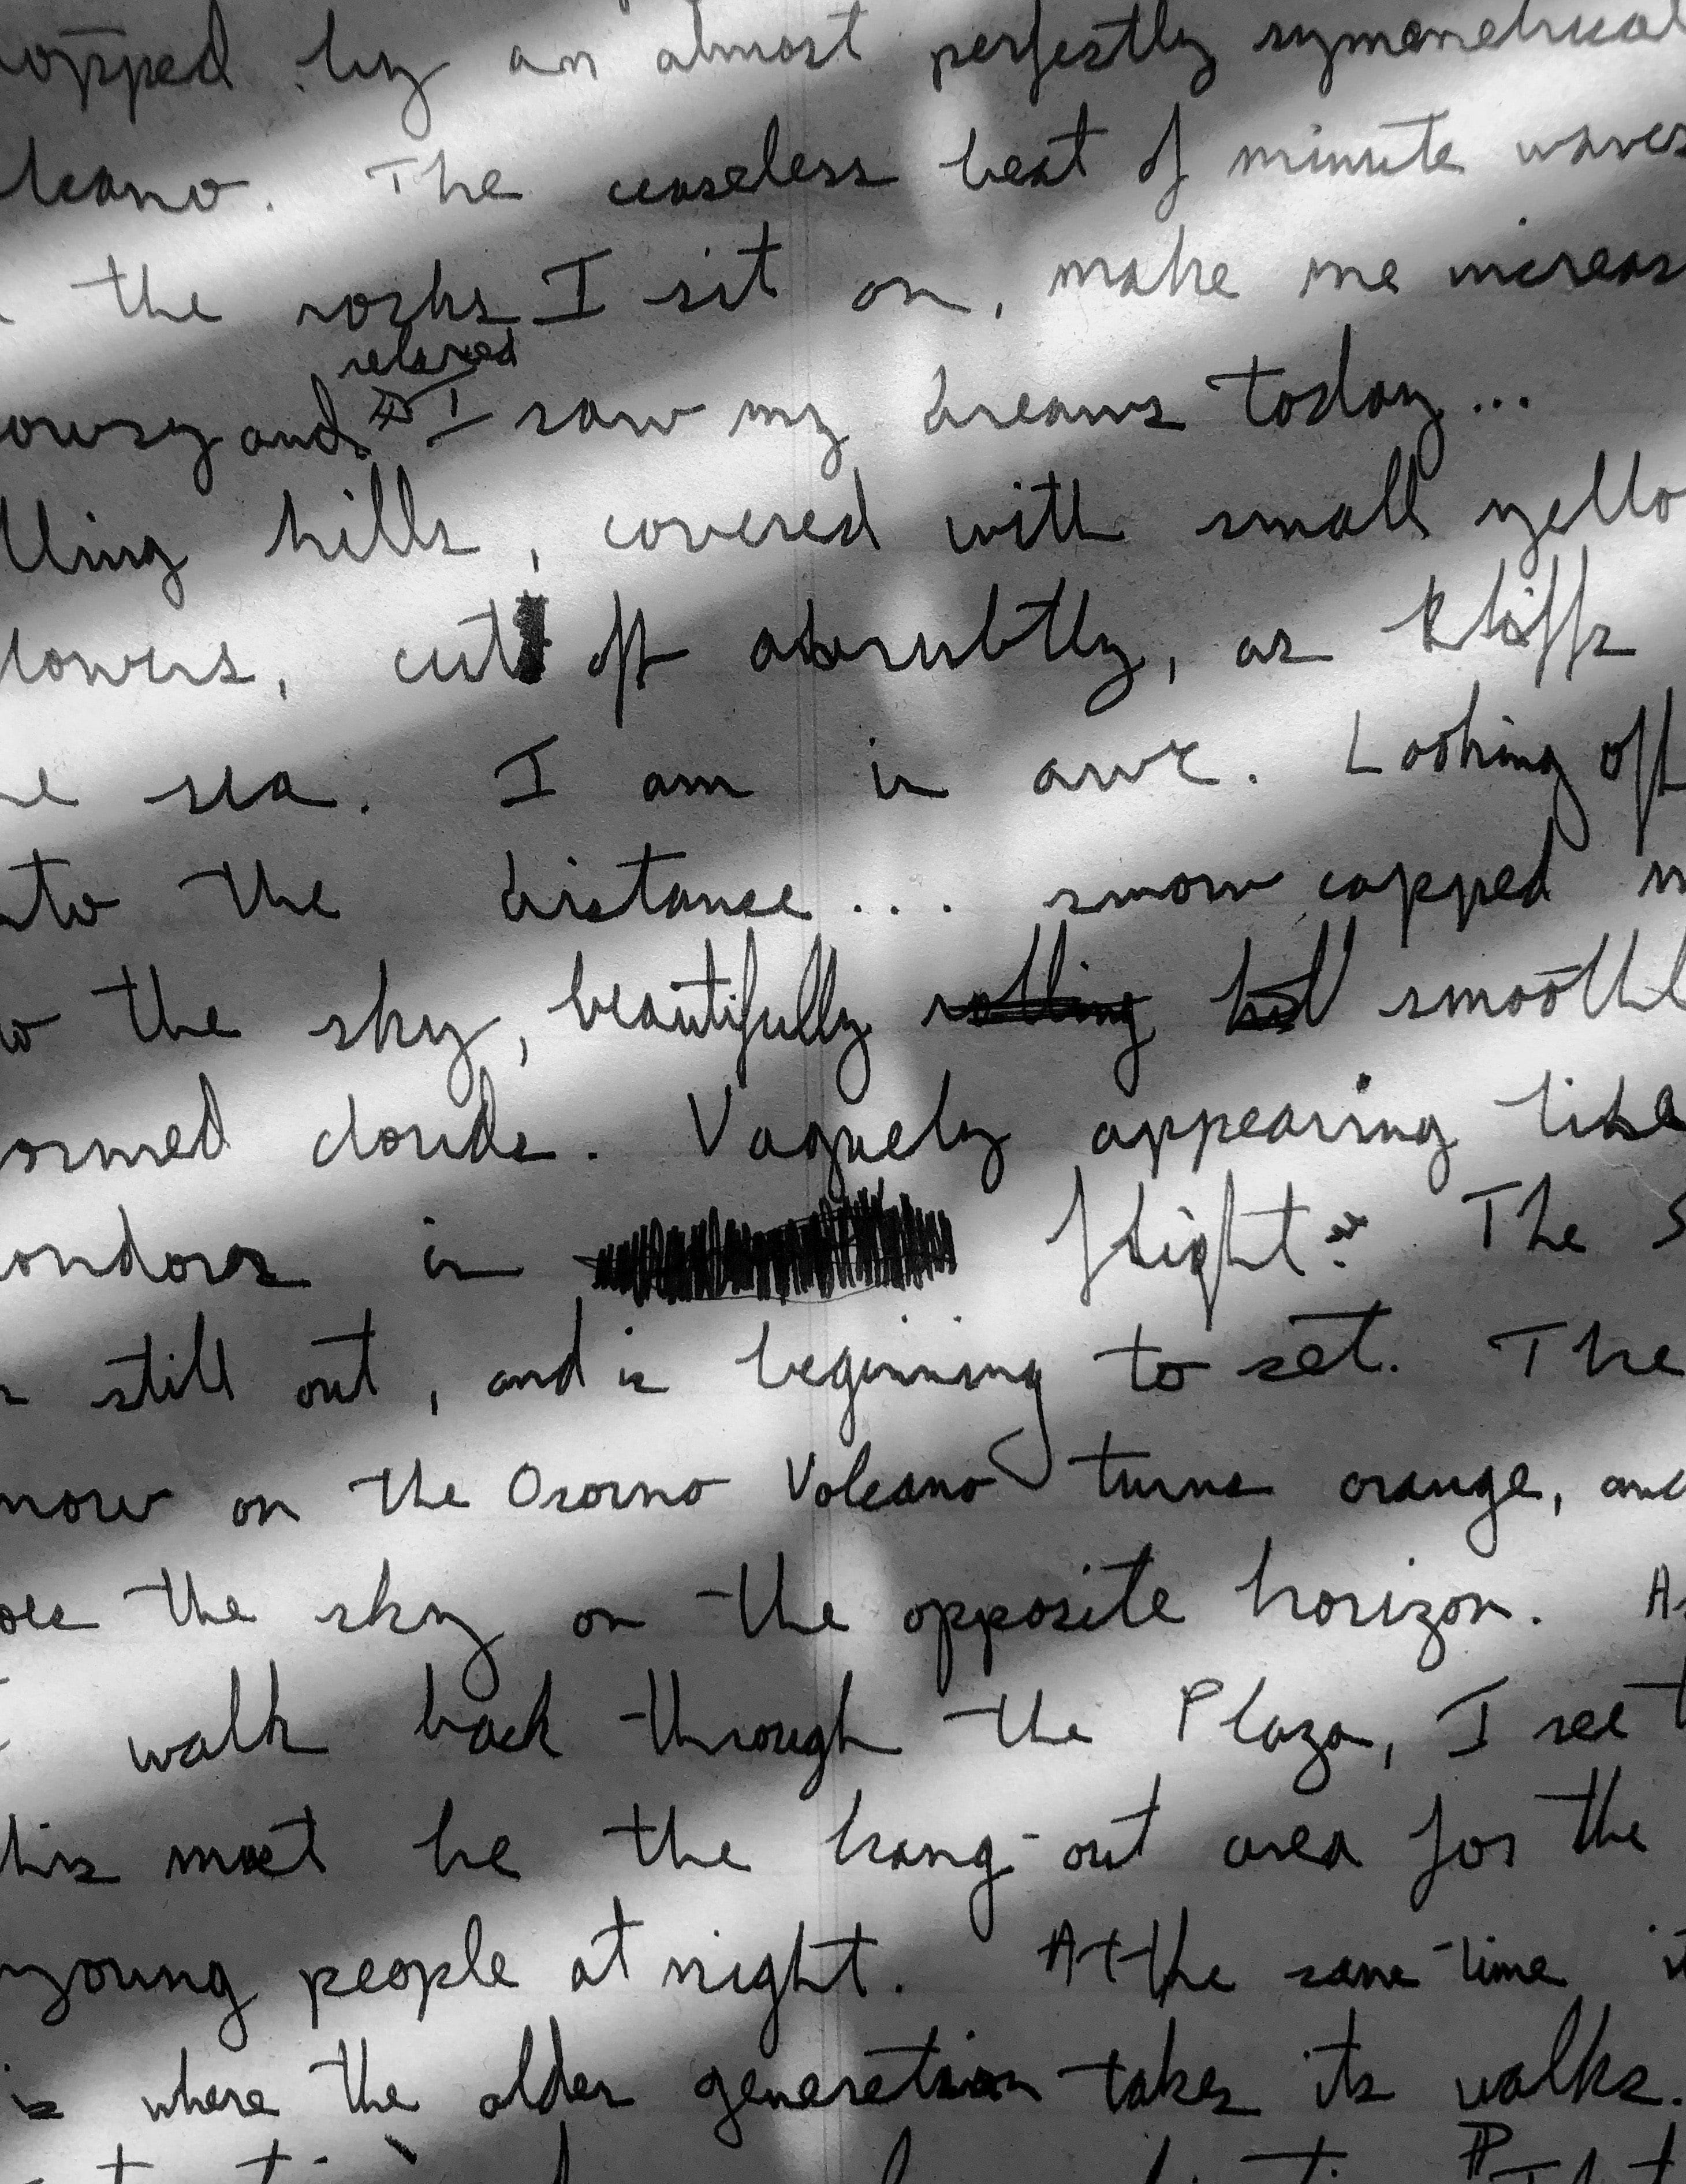 opped by an almost perfestly symenetrical
lcano. The ceaseless beat of minute waves
the rocks I sit on, make me increas
relaxed
owsy and I saw my dreams today...
lling hills, covered with small yello
lowers, cut off abrubtly, as kliffs
e sea. I am in awe. Looking off
nto the distance... snow capped m
o the sky, beautifully rolling hill smoothl
ormed clouds. Vaguely appearing like
ondors in flight. The s
still out, and is beginning to set. The
now on the Osorno Volcano turns orange, and
oes the sky on the opposite horizon. As
walk back through the Plaza, I see t
his must be the hang-out area for the
young people at night. At the same time it
is where the older generation takes its walks.